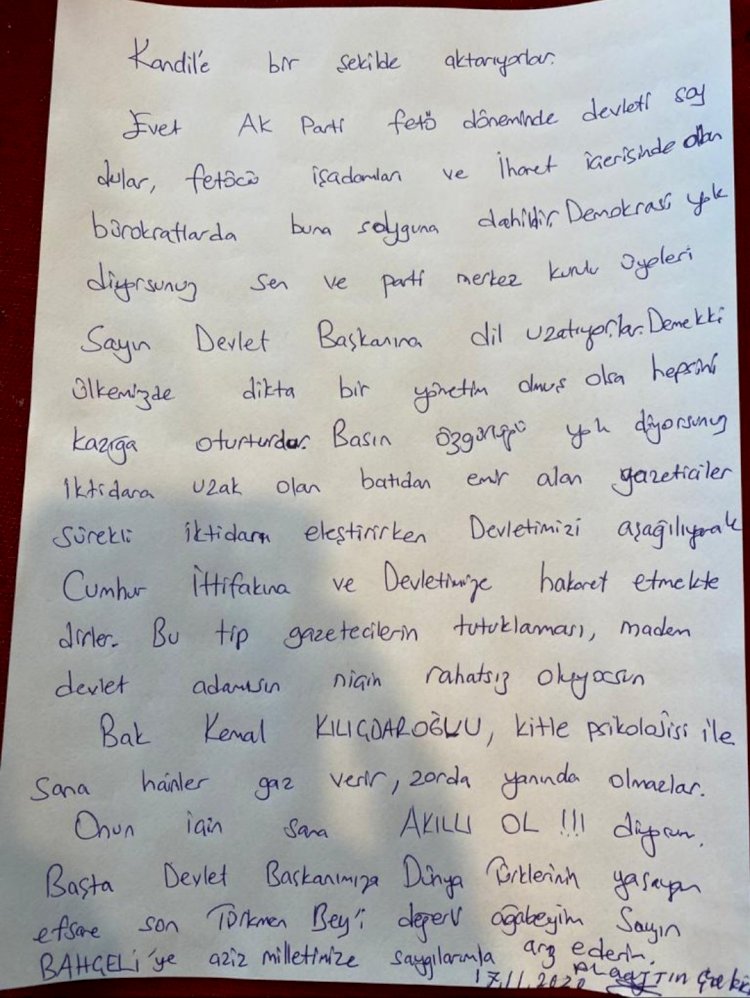 Kandil'e bir şekilde aktarıyorlar.
Evet AK Parti fetö döneminde devleti soy
dular, fetöcü işadamları ve İhanet içerisinde olan
bürokratlarda buna soyguna dahildir. Demokrasi yok
diyorsunuz sen ve parti merkez kurulu üyeleri
Sayın Devlet Başkanına dil uzatıyorlar. Demekki
ülkemizde dikta bir yönetim olmuş olsa hepsini
kazığa oturturdu. Basın özgürlüğü yok diyorsunuz
iktidara uzak olan batıdan emir alan gazeticiler
sürekli iktidarı eleştirirken Devletimizi aşağılıyarak
Cumhur İttifakına ve Devletimize hakaret etmekte
dirler. Bu tip gazetecilerin tutuklaması, madem
devlet adamısın niçin rahatsız oluyorsun
Bak Kemal KILIÇDAROĞLU, kitle psikolojisi ile
sana hainler gaz verir, zorda yanında olmazlar.
Onun için sana AKILLI OL !!! diyorum.
Başta Devlet Başkanımıza Dünya Türklerinin yaşayan
efsane son Türkmen Bey'i değerli ağabeyim Sayın
BAHÇELİ'ye aziz milletimize saygılarımla arz ederim.
17.11.2020